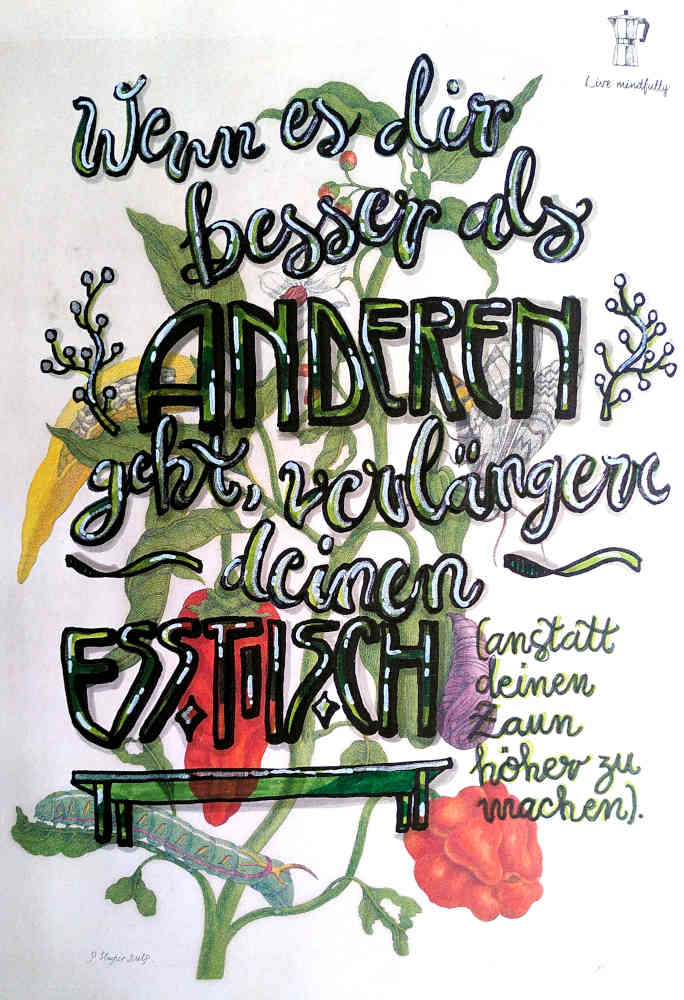 Live mindfully
Wenn es dir
besser als
ANDEREN
geht, verlängere
deinen
ESSTISCH
(anstatt
deinen
Zaun
höher zu
machen).